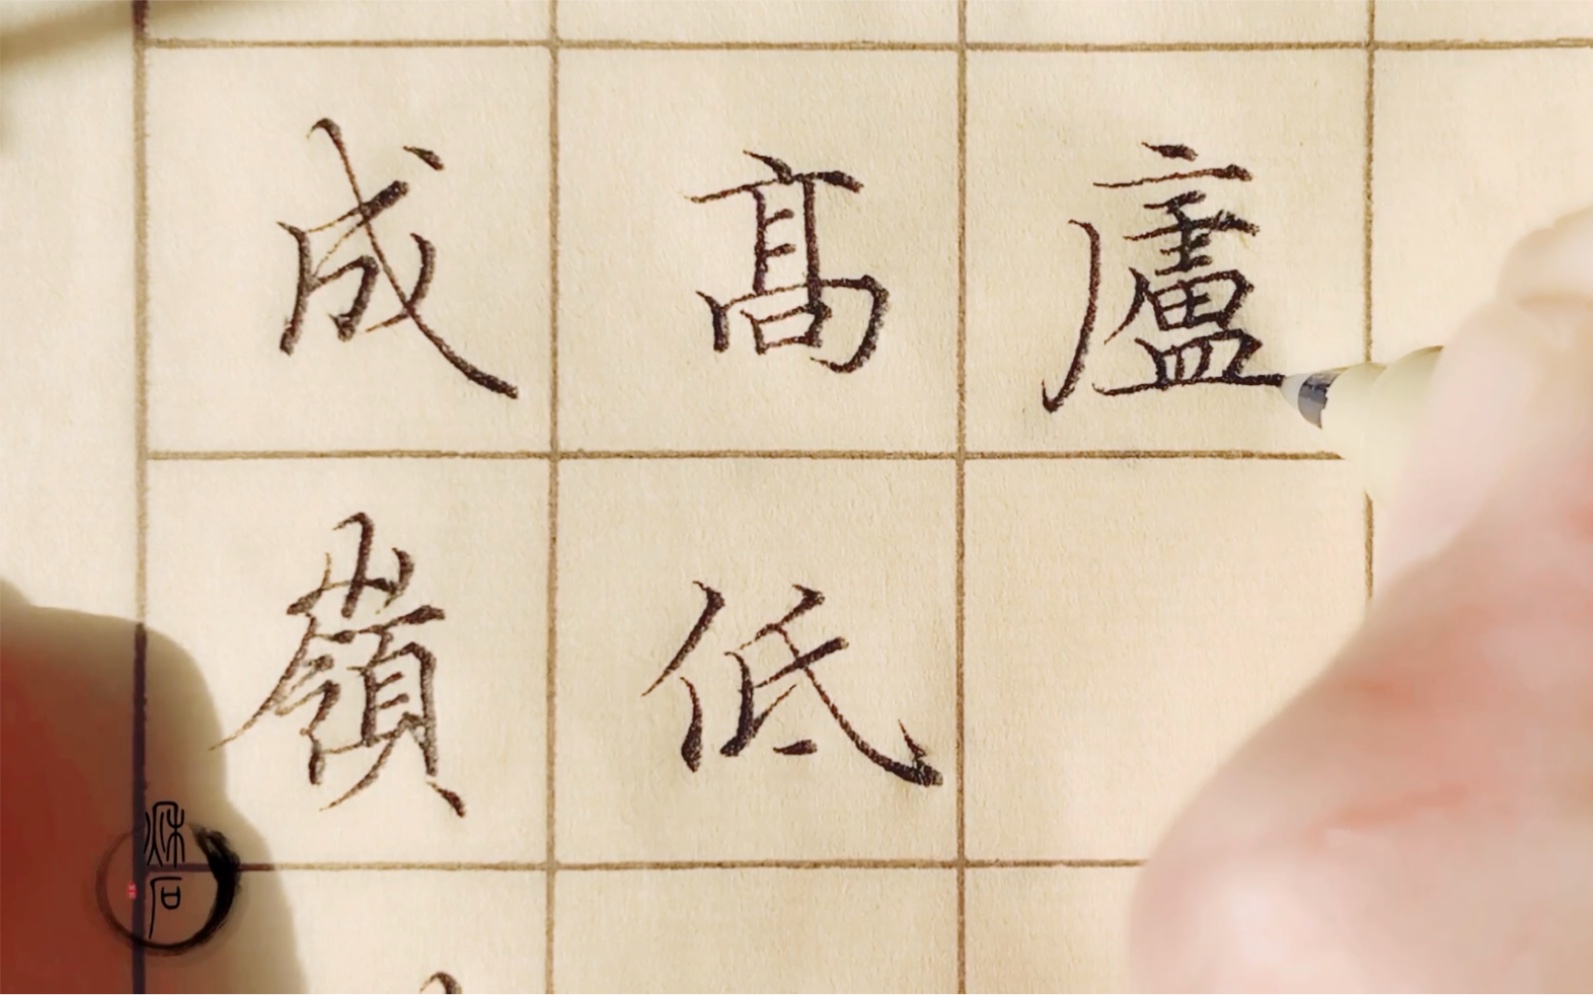 廬
髙低
成嶺